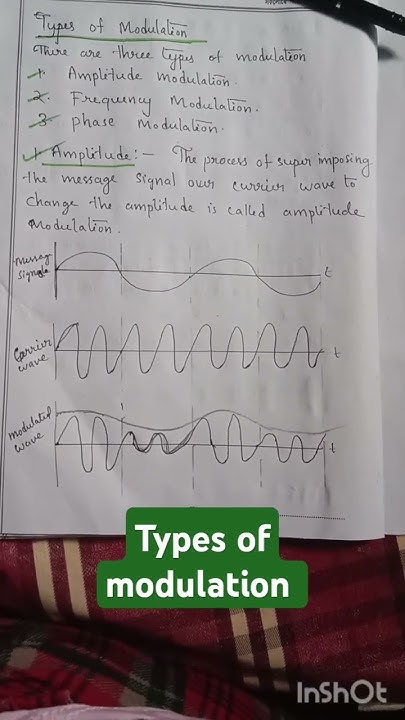 Types of Modulation
There are three types of modulation
1. Amplitude modulation.
2. Frequency Modulation.
3. phase Modulation.
1 Amplitude :- The process of super imposing
the message signal over carrier wave to
change the amplitude is called amplitude
Modulation.
messag
signal
t
Carrier
wave
t
modulated
wave
t
Types of
modulation
InShOt